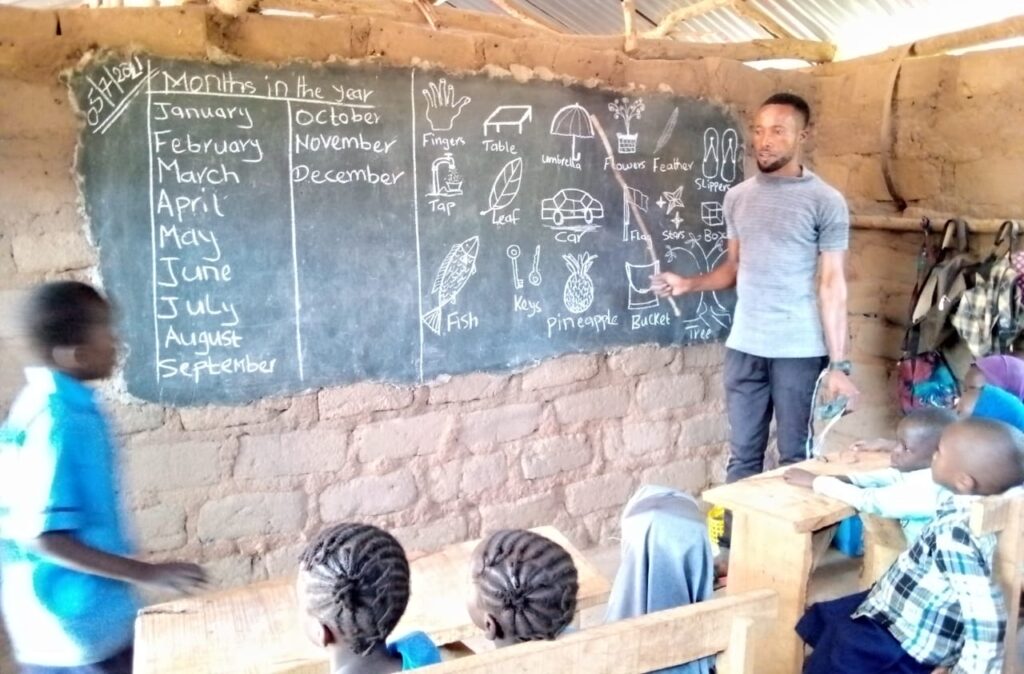 05/7/2021
Months in the year
January
February
March
April
May
June
July
August
September
October
November
December
Fingers
Table
Umbrella
Flowers
Feather
Slippers
Tap
Leaf
Car
Flag
Stars
Box
Fish
Keys
pineapple
Bucket
Tree